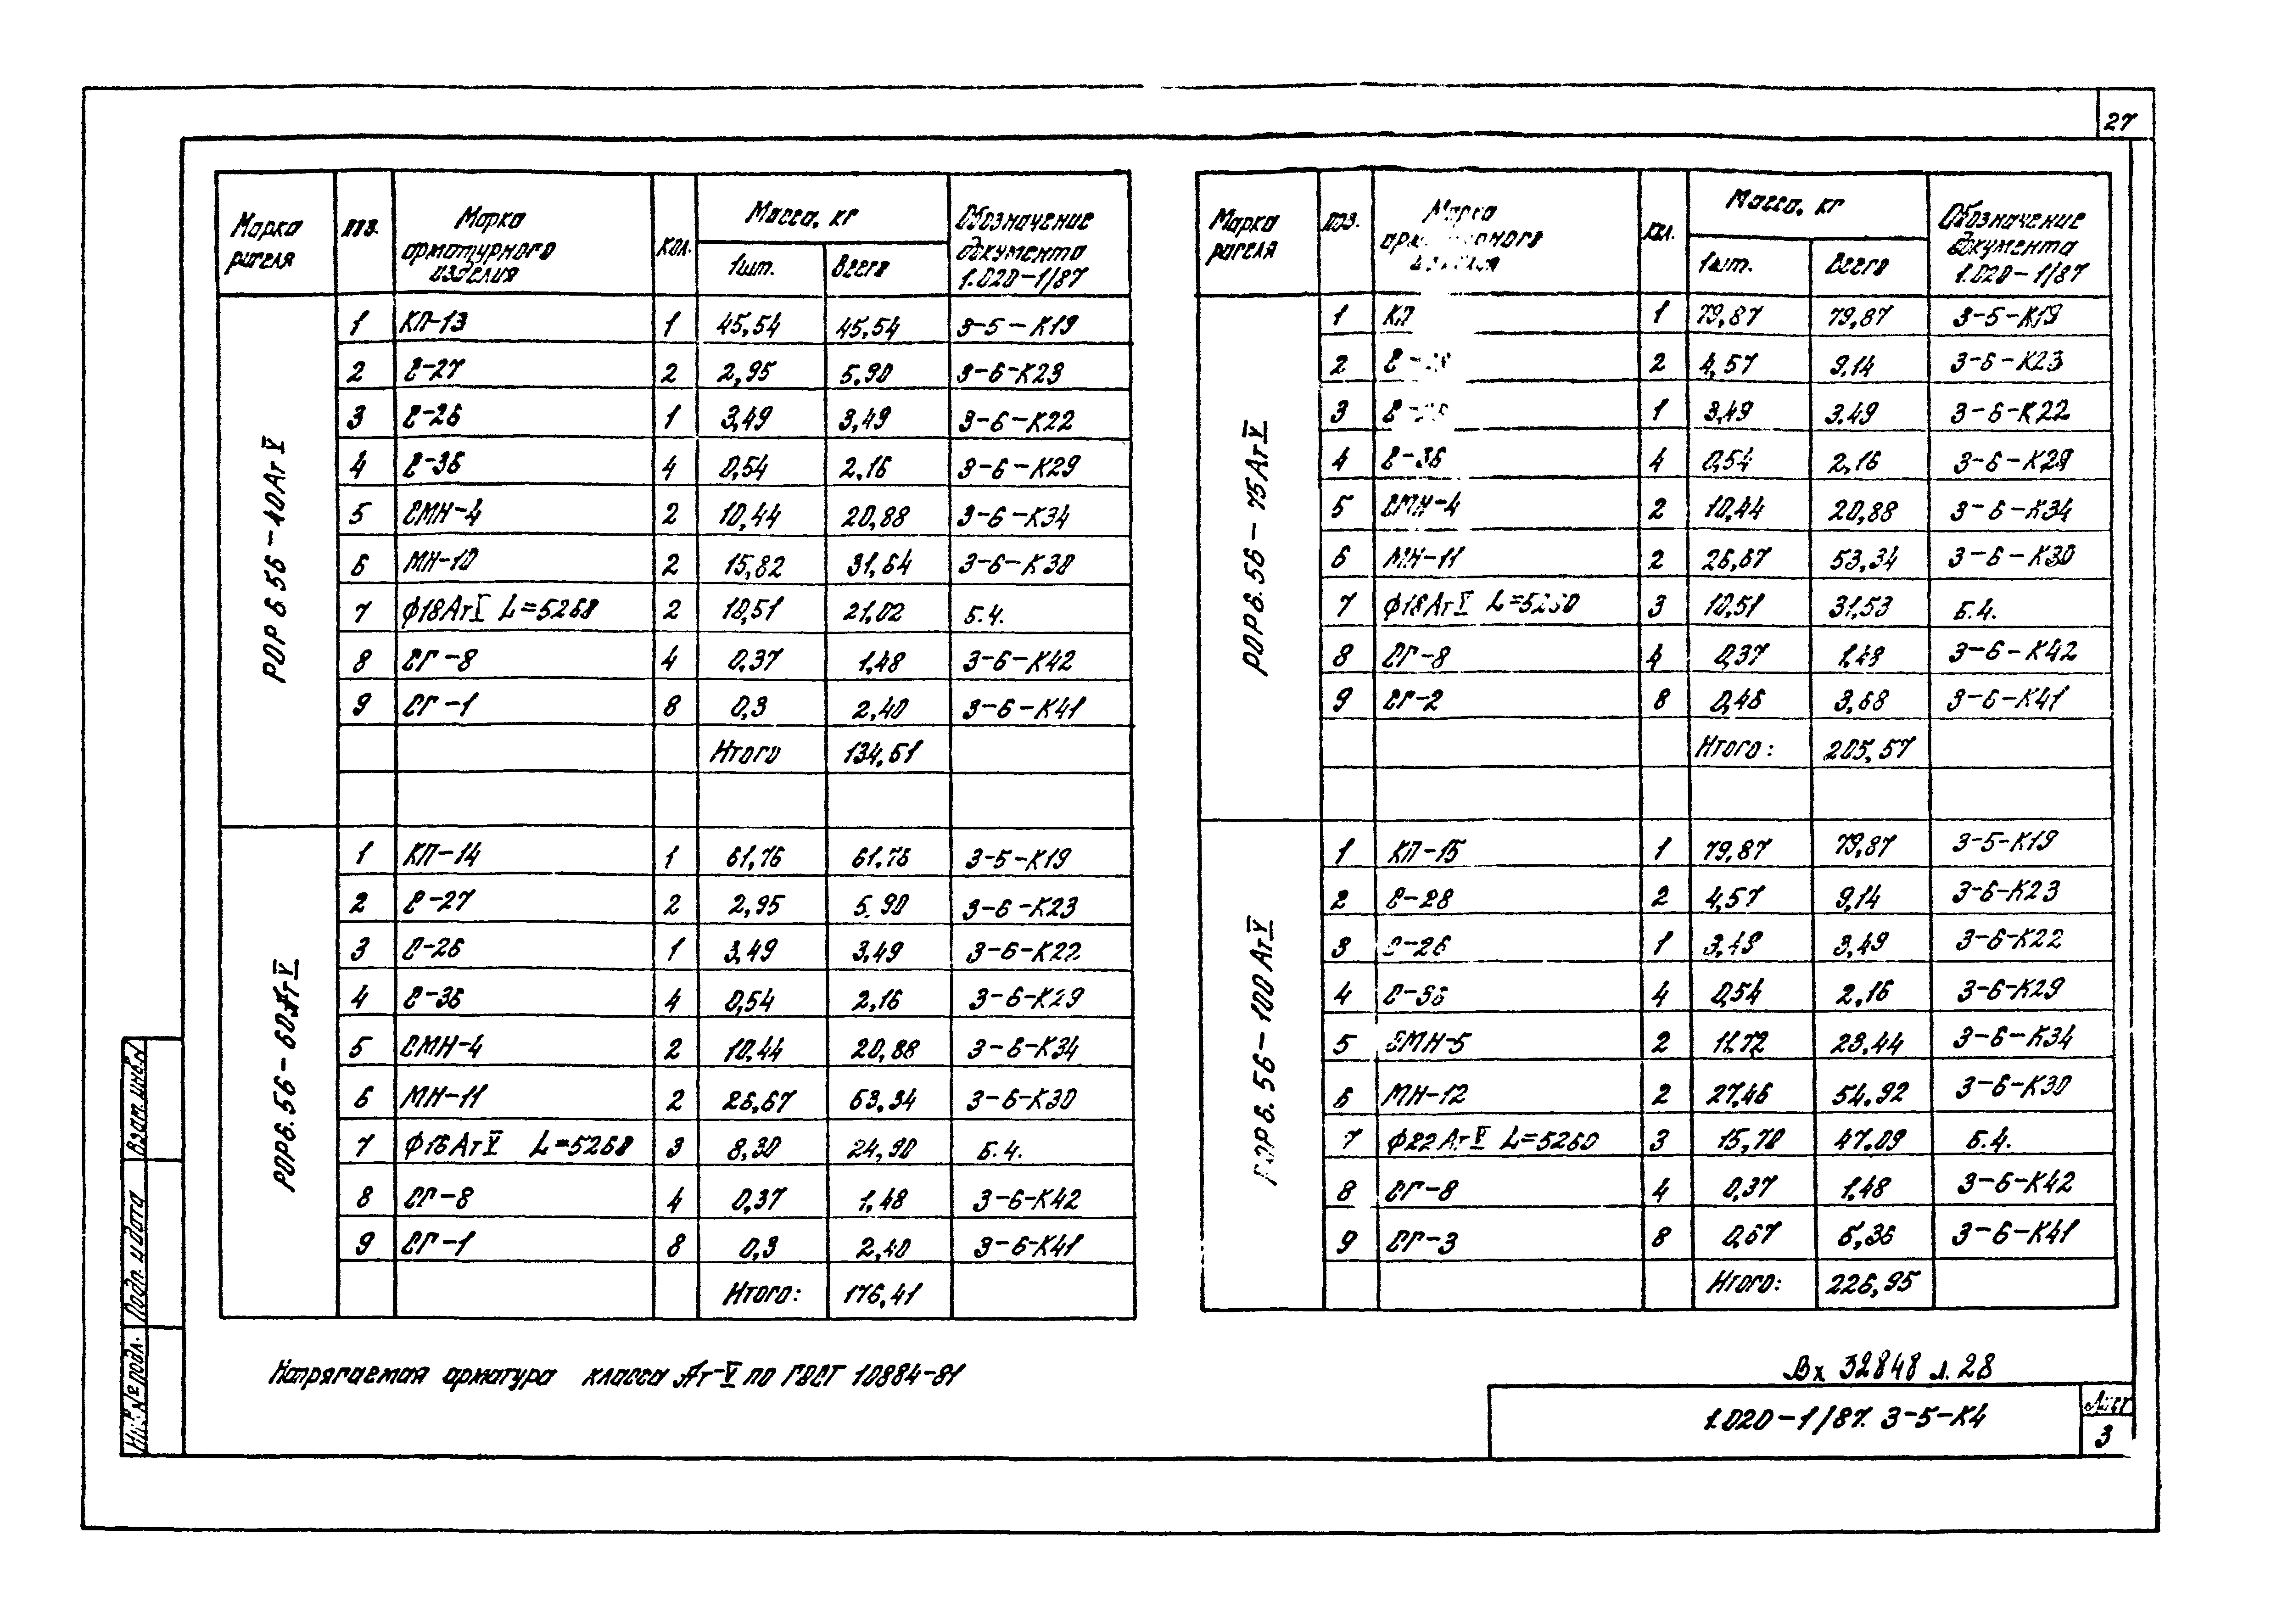 27
Марка ригеля | поз. | Марка арматурного изделия | кол. | Масса, кг 1шт. | Всего | Обозначение документа 1.020-1/87
РОР 6 56-40АтV
1 КП-13 1 45,54 45,54 3-5-К19
2 С-27 2 2,95 5,90 3-6-К23
3 С-26 1 3,49 3,49 3-6-К22
4 С-36 4 0,54 2,16 3-6-К29
5 СМН-4 2 10,44 20,88 3-6-К34
6 МН-10 2 15,82 31,64 3-6-К30
7 ф18АтV L=5260 2 10,51 21,02 Б.Ч.
8 СГ-8 4 0,37 1,48 3-6-К42
9 СГ-1 8 0,3 2,40 3-6-К41
Итого 134,51
РОР6.56-60АтV
1 КП-14 1 61,76 61,76 3-5-К19
2 С-27 2 2,95 5,90 3-6-К23
3 С-26 1 3,49 3,49 3-6-К22
4 С-36 4 0,54 2,16 3-6-К29
5 СМН-4 2 10,44 20,88 3-6-К34
6 МН-11 2 26,67 53,34 3-6-К30
7 ф16АтV L=5260 3 8,30 24,90 Б.Ч.
8 СГ-8 4 0,37 1,48 3-6-К42
9 СГ-1 8 0,3 2,40 3-6-К41
Итого: 176,41
Марка ригеля | поз. | Марка | кол. | Масса, кг 1шт. | Всего | Обозначение документа 1.020-1/87
РОР6.56-75АтV
1 КП 1 79,87 79,87 3-5-К19
2 2 4,57 9,14 3-6-К23
3 1 3,49 3.49 3-6-К22
4 С-36 4 0,54 2,16 3-6-К29
5 СМН-4 2 10,44 20,88 3-6-К34
6 МН-11 2 26,67 53,34 3-6-К30
7 ф18АтV L=5260 3 10,51 31,53 Б.Ч.
8 СГ-8 4 0,37 1,48 3-6-К42
9 СГ-2 8 0,46 3,68 3-6-К41
Итого: 205,57
РОР6.56-100АтV
1 КП-15 1 79,87 79,87 3-5-К19
2 С-28 2 4,57 9,14 3-6-К23
3 С-26 1 3,49 3,49 3-6-К22
4 С-36 4 0,54 2,16 3-6-К29
5 СМН-5 2 11.72 23.44 3-6-К34
6 МН-12 2 27,46 54,92 3-6-К30
7 ф22АтV L=5260 3 15,70 47,09 Б.Ч.
8 СГ-8 4 0,37 1,48 3-6-К42
9 СГ-3 8 0,67 5,36 3-6-К41
Итого: 226,95
Напрягаемая арматура класса Ат-V по ГОСТ 10884-81
Вх 32848 л. 28
1.020-1/87. 3-5-К4
Лист
3
Взам. инв.N
Подп. и дата
Инв.№ подл.